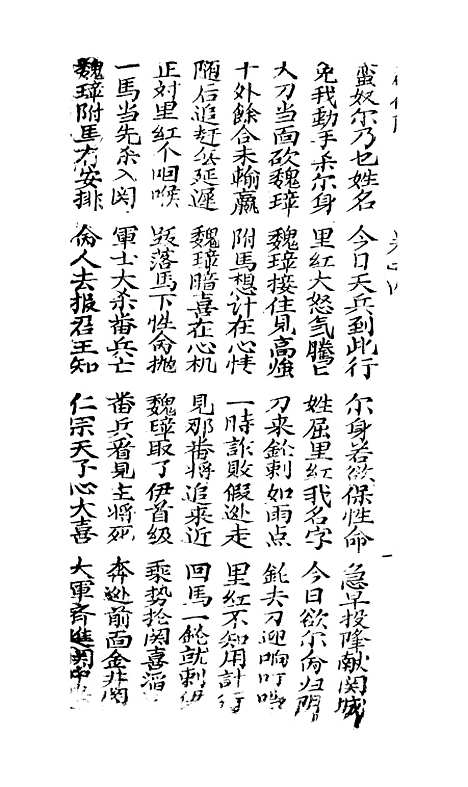 蛮奴尔乃乜姓名 今日天兵到此行 尔身若欲保性命 急早投降献関城
免我動手杀尔身 里红大怒气騰口 姓屈里红我名字 今日欲尔侖归阴
大刀当面砍魏璋 魏璋接住見高強 刀来鈊刺如雨点 鈊去刀迎响叮噹
十外餘合未輸贏 附馬想計在心情 一時詐敗假迯走 里红不知用計行
随后追赶坐延遲 魏璋暗喜在心机 見那番将追来近 回馬一鎗就刺伊
正対里红个咽喉 跌落馬下性侖抛 魏璋取了伊首级 乘势抢関喜滔
一馬当先杀入関 軍士大杀番兵亡 番兵看見主将死 奔迯前面金非関
魏璋附馬有安排 侖人去报君王知 仁宗天子心大喜 大軍齐進関中